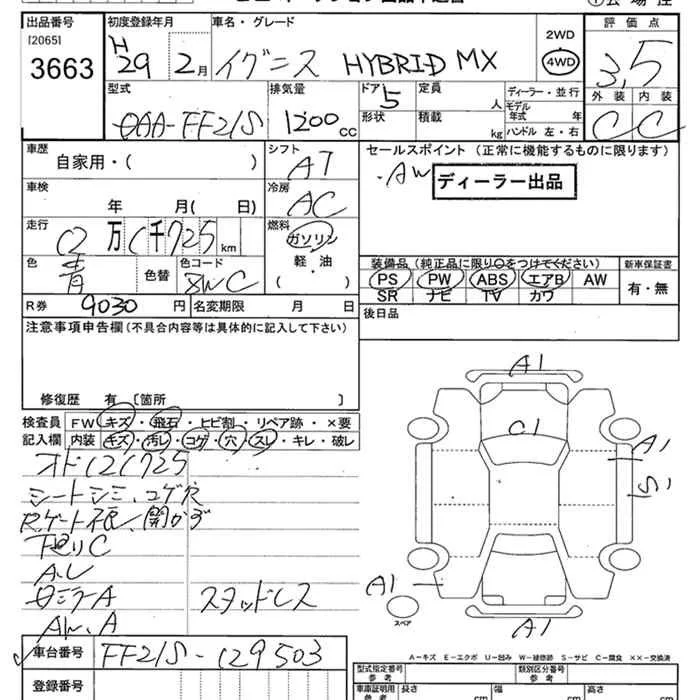 出品番号 初度登録年月 車名・グレード 2WD 評価点
[2065] H
3663 29 2月 イグニス HYBRID MX 4WD 3.5
型式 排気量 ドア 定員 ディーラー・並行 外装 内装
DAA-FF21S 1200cc 5 人 モデル年式 年 C C
形状 積載 kg ハンドル 左・右
車歴 シフト セールスポイント (正常に機能するものに限ります)
自家用・( ) AT ・AW ディーラー出品
車検 冷房
年 月( 日) AC
走行 燃料
0万 1千725km ガソリン
軽・油
( )
色 色コード 装備品(純正品に限り○をつけてください) 新車保証書
青 色替 PS PW ABS エアB AW 有・無
SR ナビ TV カワ
R券 9030円 名変期限 月 日 後日品
注意事項申告欄(不具合内容等は具体的に記入して下さい)
修復歴 有 〔箇所 〕
検査員 FW キズ・飛石・ヒビ割・リペア跡・×要
記入欄 内装 キズ・汚レ・コゲ・穴・スレ・キレ・破レ
シートシミ、コゲ穴
下廻りC
A.L
スタッドレス
AW、A
A1
C1
A1
S1
A1
スペア
A1
車台番号 FF21S-129503
登録番号
A-キズ E-エクボ U-凹み W-補修跡 S-サビ C-腐食 XX-交換済
型式指定番号 参考 類別区分番号
車庫証明用 参考 長さ cm 幅 cm 高さ cm